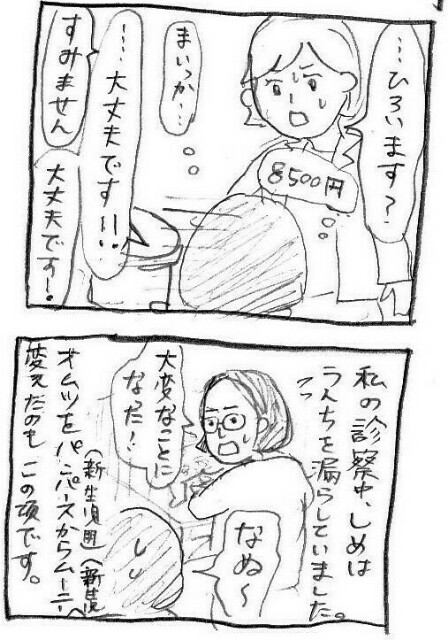 …ひろいます?
8500円
まいっか…
…大丈夫です!!
すみません
大丈夫です!
私の診察中、しめは
うんちを漏らしていました。
大変なことに
なった!
なぬ〜
オムツをパンパースからムーニーへ
(新生児用)(新生児
変えたのもこの頃です。